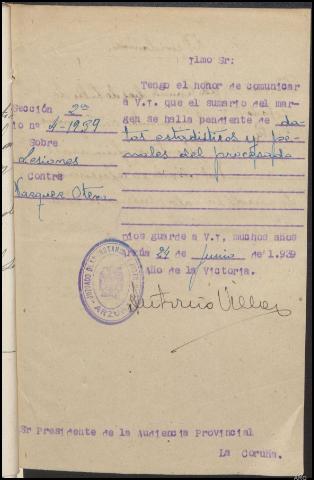 Ilmo Sr:
Tengo el honor de comunicar
a V.I. que el sumario del mar-
gen se halla pendiente de da-
tos estadisticos y pe-
nales del procesado
Sección 2ª
io nº 4-1939
Sobre
Lesiones
contra
Vazquez Oten
Dios guarde a V.I. muchos años
Arzúa 24 de Junio de 1.939
Año de la Victoria.
JUZGADO DE INSTRUCCION
ARZUA
Antonio Villar
Sr Presidente de la Audiencia Provincial
La Coruña.